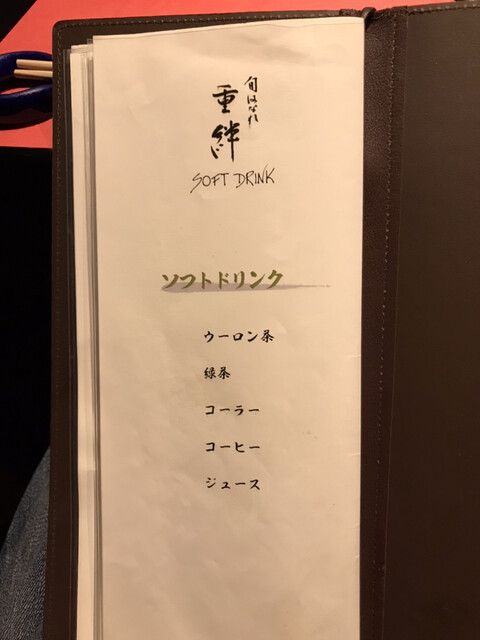 旬はなれ
重絆
SOFT DRINK
ソフトドリンク
ウーロン茶
緑茶
コーラー
コーヒー
ジュース